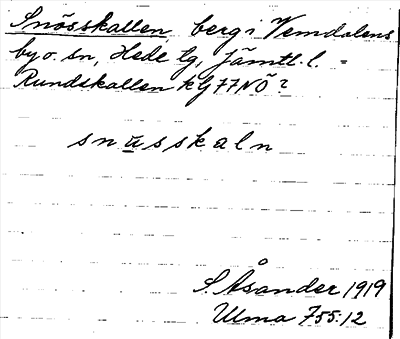 Snösskallen berg i Vemdalens
by o. sn, Hede tg, Jämtl. l. =
Rundskallen kbl 77NÖ?
snusskaln
S. Åsander 1919
Ulma 755:12